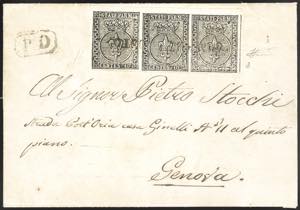 STATI PARM. STATI PARM. STATI PARM.
CENTES. 10 CENTES. 10 CENTES. 10
P D
Al Signor Pietro Stocchi
Strada Post'Oria casa Ginelli N° 11 al quinto
piano.
Genova.